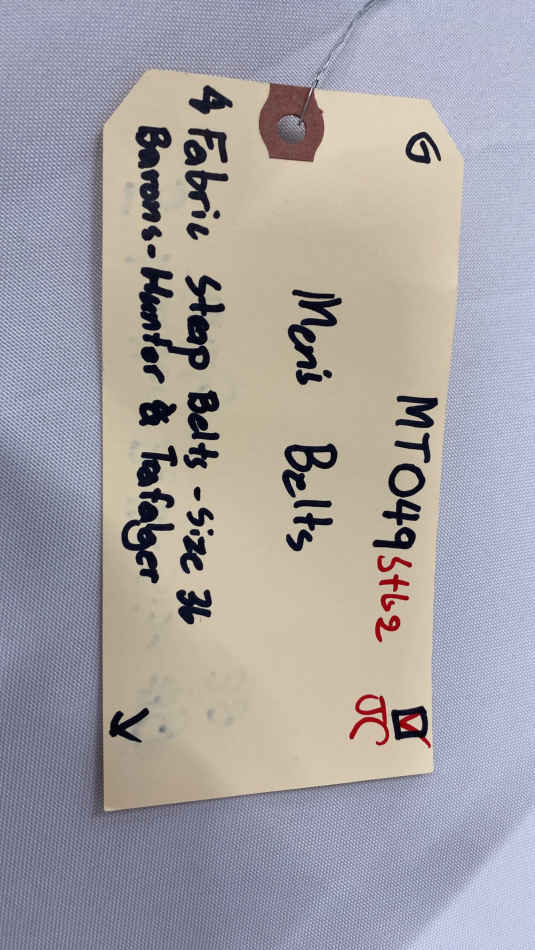 G
MT049 StL2
JC
Men's Belts
4 Fabric Strap Belts - Size 36
Barons-Hunter & Trafalger